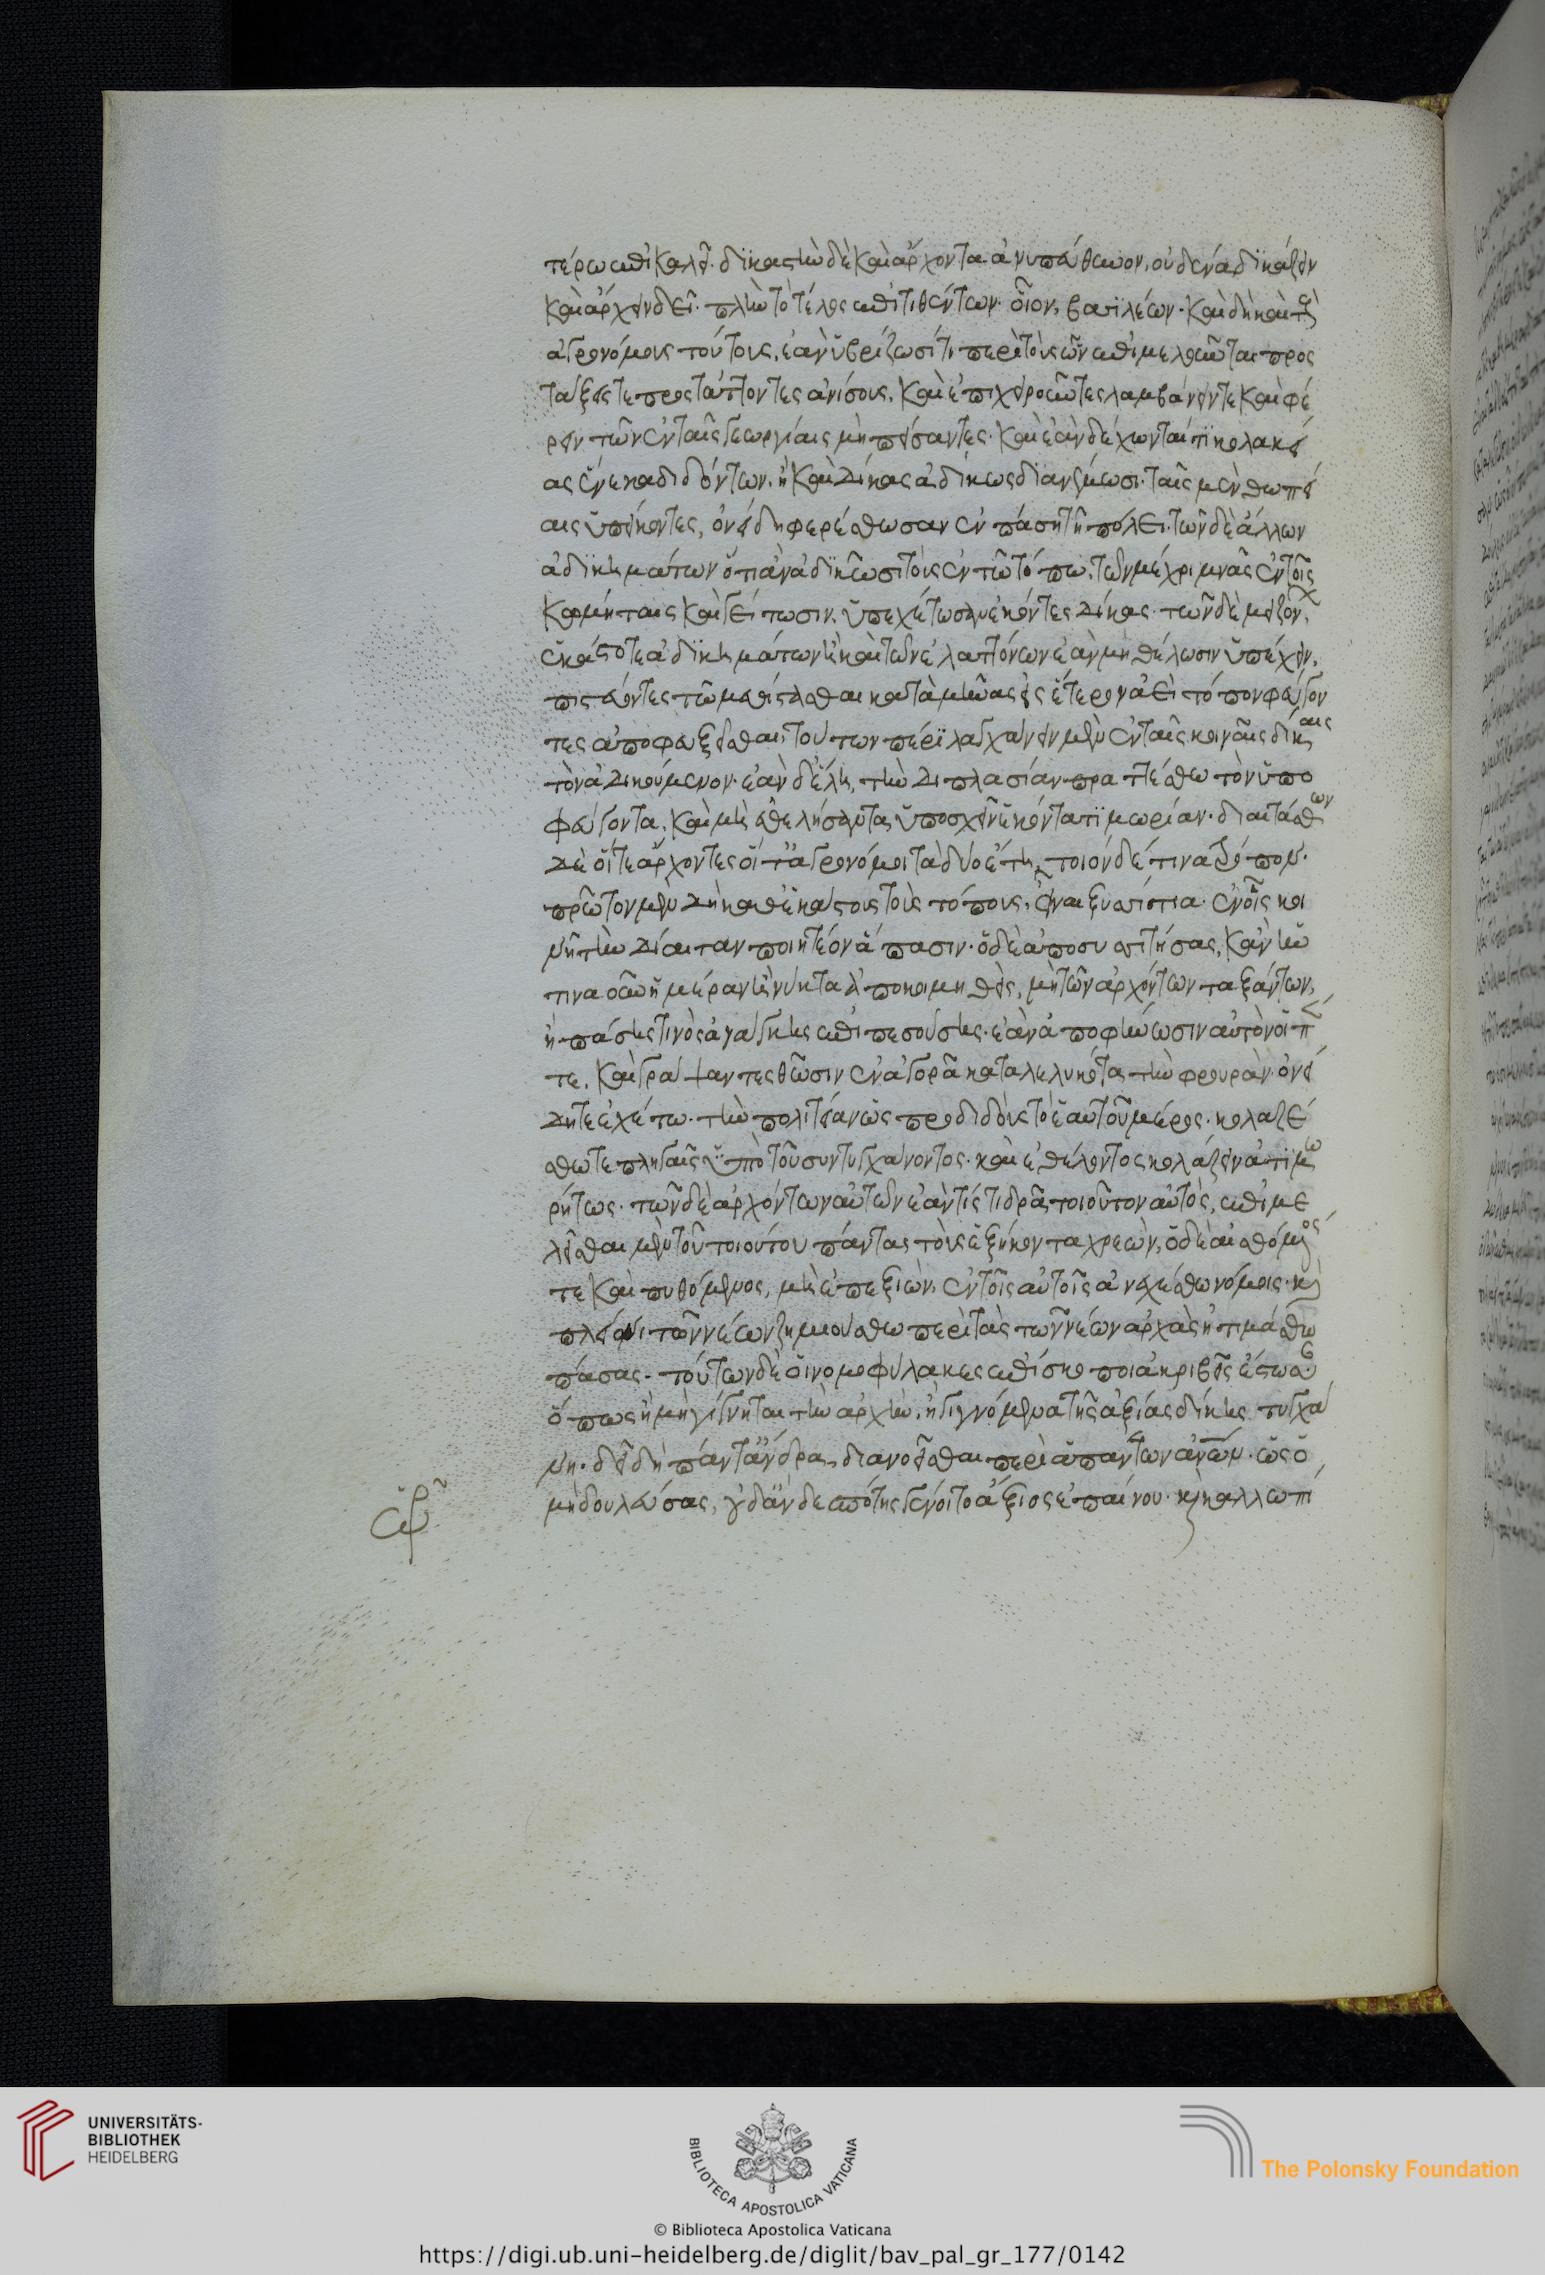 τέρω ἐπικαλεῖ. δικαστὴν δὲ καὶ ἄρχοντα ἀνυπεύθυνον, οὐδένα δικάζειν
καὶ ἄρχειν δεῖ. πλὴν τὸ τέλος ἐπιτιθέντων. οἷον, βασιλέων. καὶ δὴ καὶ τοὺς
ἀγρονόμους τούτους, ἐὰν ὑβρίζωσί τι περὶ τοὺς ὧν ἐπιμελοῦνται προς
τάξεις τε προστάττοντες ἀνίσους, καὶ ἐπιχειροῦντες λαμβάνειν τε καὶ φέ
ρειν τῶν ἐν ταῖς γεωργίαις μὴ πείσαντες. καὶ ἐὰν δέχωνταί τι κολακεί
ας ἕνεκα διδόντων, ἢ καὶ δίκας ἀδίκως διανέμωσι. ταῖς μὲν θωπεί
αις ὑπείκοντες, ὀνείδη φερέσθωσαν ἐν πάσῃ τῇ πόλει. τῶν δὲ ἄλλων
ἀδικημάτων ὅτι ἂν ἀδικῶσι τοὺς ἐν τῶ τόπω, τῶν μέχρι μνᾶς ἐν τοῖς
κωμήταις καὶ γείτωσιν, ὑπεχέτωσαν ἑκόντες δίκας. τῶν δὲ μειζόνων,
ἑκάστοτε ἀδικημάτων ἢ καὶ τῶν ἐλαττόνων ἐὰν μὴ θέλωσιν ὑπέχειν,
πιστεύοντες τῶ μεθίστασθαι κατὰ μῆνας εἰς ἕτερον ἀεὶ τόπον φεύγον
τες ἀποφευξεῖσθαι, τούτων πέρι λαγχάνειν μὲν ἐν ταῖς κοιναῖς δίκαις
τὸν ἀδικούμενον. ἐὰν δ' ἕλη, τὴν διπλασίαν πραττέσθω τὸν ὑπο
φεύγοντα, καὶ μὴ ἐθελήσαντα ὑποσχεῖν ἑκόντα τιμωρίαν. διαιτάσθων
δὲ οἵ τε ἄρχοντες οἵ τ' ἀγρονόμοι τὰ δύο ἔτη, τοιόνδέ τινα τρόπον.
πρῶτον μὲν δὴ καθ' ἑκάστους τοὺς τόπους, εἶναι ξυσσίτια. ἐν οἷς κοι
νῆ τὴν δίαιταν ποιητέον ἅπασιν. ὁ δὲ ἀποσυσσιτήσας, κἂν ἡν
τιναοῦν ἡμέραν ἢ νύκτα ἀποκοιμηθεὶς, μὴ τῶν ἀρχόντων ταξάντων,
ἢ πάσης τινὸς ἀνάγκης ἐπιπεσούσης. ἐὰν ἀποφήνωσιν αὐτὸν οἱ πέν
τε, καὶ γράψαντες θῶσιν ἐν ἀγορᾶ καταλελυκότα τὴν φρουρὰν. ὀνεί
δη τε ἐχέτω. τὴν πολιτείαν ὡς προδιδοὺς τὸ ἑαυτοῦ μέρος. κολαζέ
σθω τε πληγαῖς ὑπὸ τοῦ συντυγχάνοντος. καὶ ἐθέλοντος κολάζειν ἀτιμω
ρήτως. τῶν δὲ ἀρχόντων αὐτῶν ἐάν τίς τι δρᾶ τοιοῦτον αὐτὸς, ἐπιμε
λεῖσθαι μὲν τοῦ τοιούτου πάντας τοὺς ἑξήκοντα χρεών, ὁ δὲ αἰσθόμενός
τε καὶ πυθόμενος, μὴ ἐπεξιὼν, ἐν τοῖς αὐτοῖς ἀνεχέσθω νόμοις. καὶ
πλείονι τῶν νέων ζημιούσθω περὶ τὰς τῶν νέων ἀρχὰς ἠτιμάσθω
πάσας. τούτων δὲ οἱ νομοφύλακες ἐπίσκοποι ἀκριβεῖς ἔστωσαν
ὅπως ἢ μὴ γίγνηται τὴν ἀρχὴν, ἢ γιγνόμενα τῆς ἀξίας δίκης τυγχά
νη. δεῖ δὴ πάντ' ἄνδρα, διανοεῖσθαι περὶ ἁπάντων ἀνων. ὡς ὁ
μὴ δουλεύσας, οὐδ' ἂν δεσπότης γένοιτο ἄξιος ἐπαίνου. καὶ καλλωπί
UNIVERSITÄTS-
BIBLIOTHEK
HEIDELBERG
BIBLIOTECA APOSTOLICA VATICANA
The Polonsky Foundation
© Biblioteca Apostolica Vaticana
https://digi.ub.uni-heidelberg.de/diglit/bav_pal_gr_177/0142